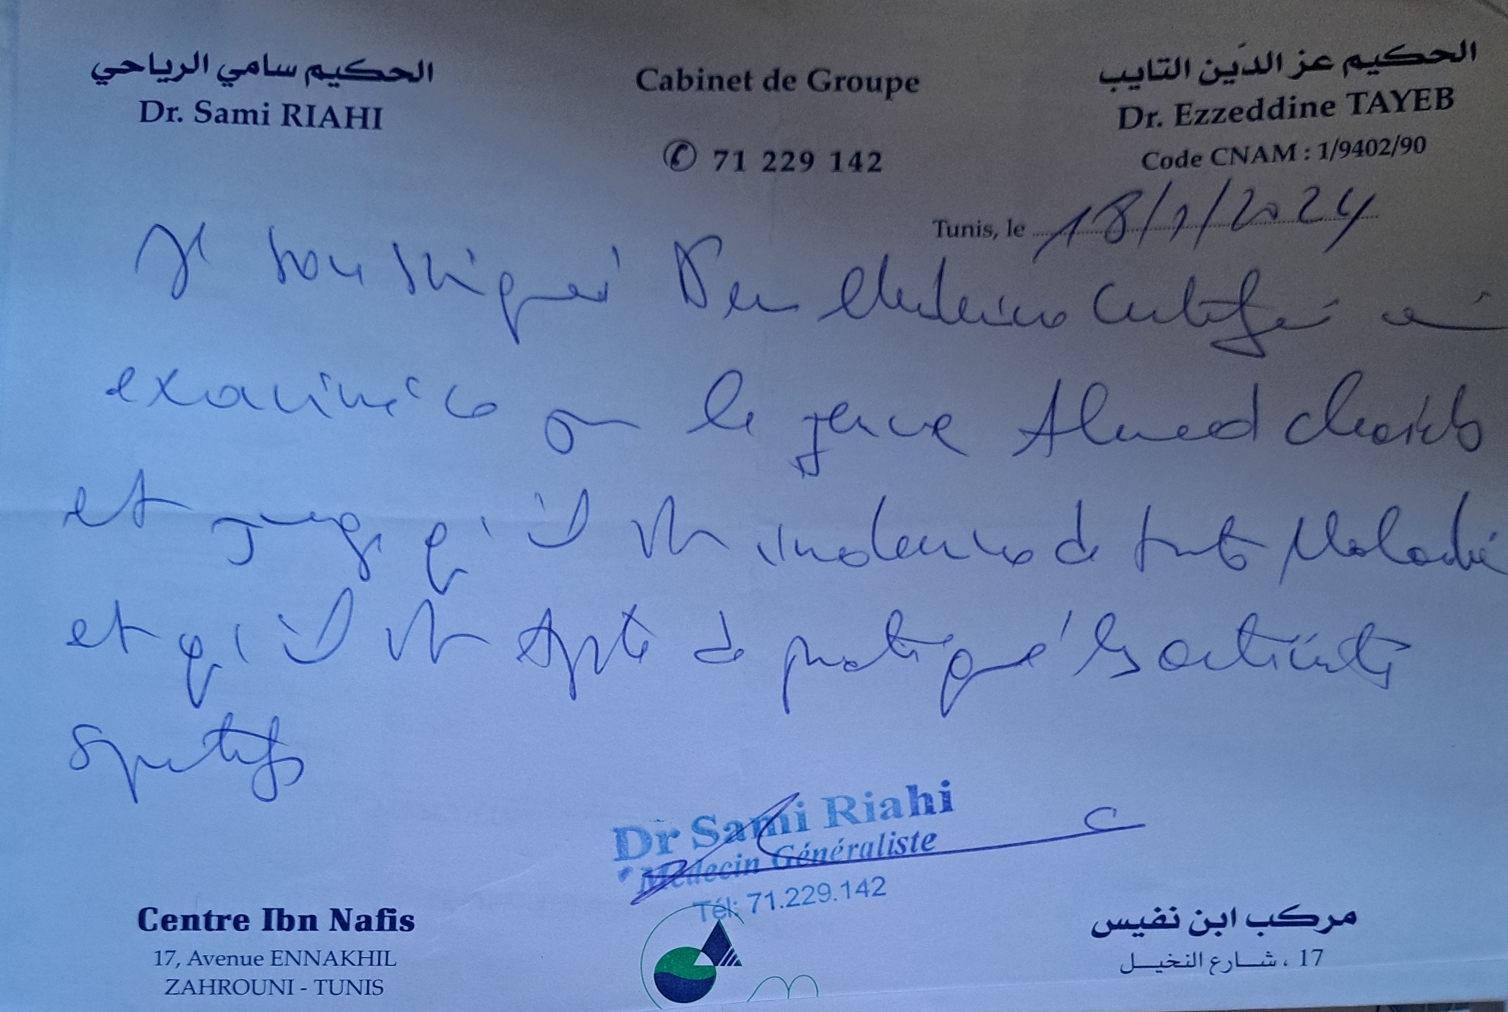 الحكيم سامي الرياحي
Dr. Sami RIAHI
Cabinet de Groupe
✆ 71 229 142
الحكيم عز الدين التايب
Dr. Ezzeddine TAYEB
Code CNAM : 1/9402/90
Tunis, le 18/1/2024
Je soussigné Dr en Médecine certifie
examiné ce le jeune Ahmed
et juge qu'il est indemne de toute Maladie
et qu'il est apte de pratiqué les activités
sportifs
Dr Sami Riahi
Médecin Généraliste
Tél: 71.229.142
Centre Ibn Nafis
17, Avenue ENNAKHIL
ZAHROUNI - TUNIS
مركب ابن نفيس
17 ، شارع النخيل